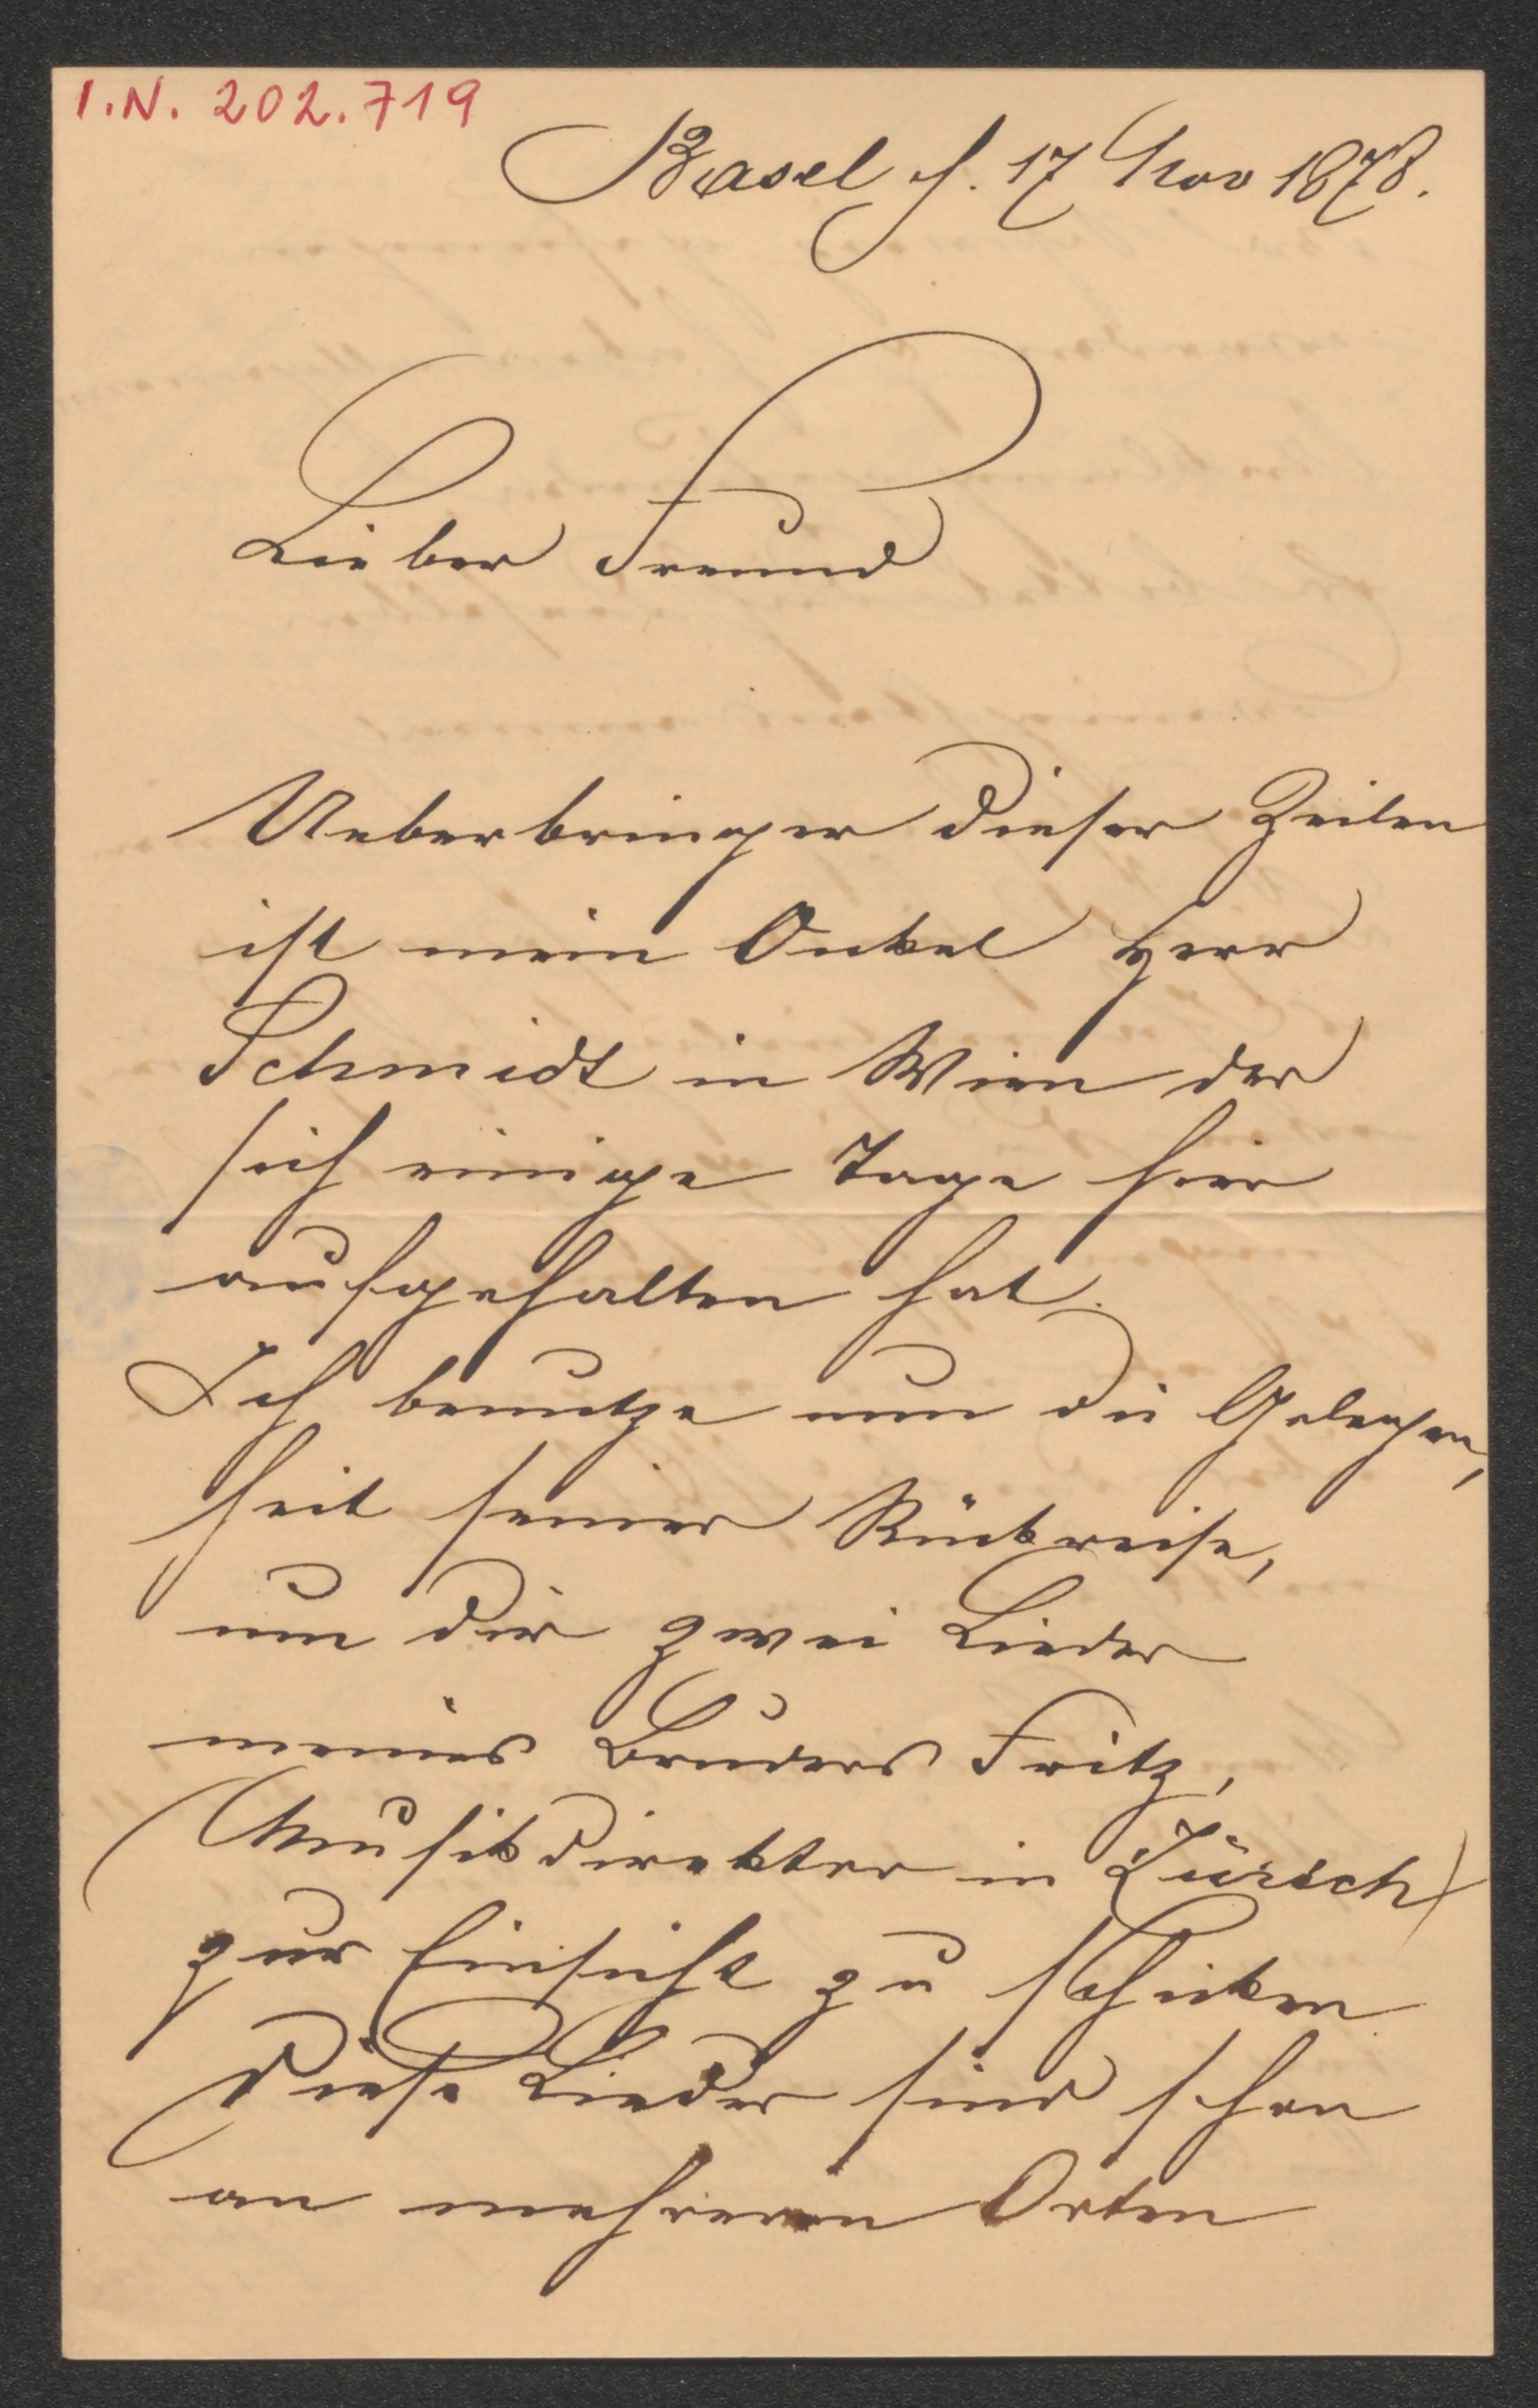 I.N. 202.719
Basel d. 17 Nov 1878.
Lieber Freund
Ueberbringer dieser Zeilen
ist mein Onkel Herr
Schmidt in Wien der
sich einige Tage hier
aufgehalten hat.
Ich benutze nun die Gelegen,
heit seiner Rückreise,
um dir zwei Lieder
meines Bruders Fritz,
(Musikdirektor in Zürich)
zur Einsicht zu schicken
Diese Lieder sind schon
an mehreren Orten